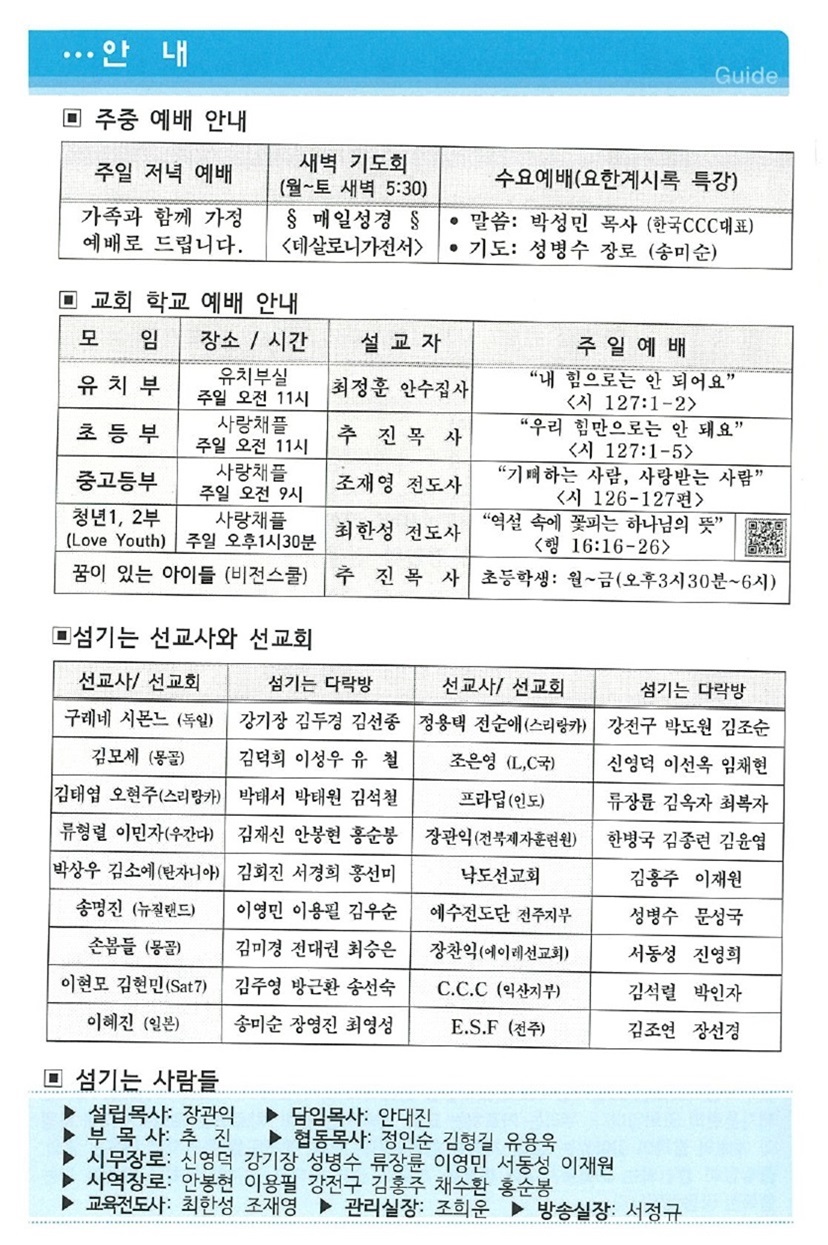 …안 내
Guide
▣ 주중 예배 안내
주일 저녁 예배 새벽 기도회 (월~토 새벽 5:30) 수요예배(요한계시록 특강)
가족과 함께 가정 § 매일성경 § • 말씀: 박성민 목사 (한국CCC대표)
예배로 드립니다. <데살로니가전서> • 기도: 성병수 장로 (송미순)
▣ 교회 학교 예배 안내
모 임 장소 / 시간 설 교 자 주 일 예 배
유 치 부 유치부실 주일 오전 11시 최정훈 안수집사 “내 힘으로는 안 되어요” <시 127:1-2>
초 등 부 사랑채플 주일 오전 11시 추 진 목 사 “우리 힘만으로는 안 돼요” <시 127:1-5>
중고등부 사랑채플 주일 오전 9시 조재영 전도사 “기뻐하는 사람, 사랑받는 사람” <시 126-127편>
청년1, 2부 (Love Youth) 사랑채플 주일 오후1시30분 최한성 전도사 “역설 속에 꽃피는 하나님의 뜻” <행 16:16-26>
꿈이 있는 아이들 (비전스쿨) 추 진 목 사 초등학생: 월~금(오후3시30분~6시)
▣섬기는 선교사와 선교회
선교사/ 선교회 섬기는 다락방 선교사/ 선교회 섬기는 다락방
구레네 시몬느 (독일) 강기장 김두경 김선종 정용택 전순애(스리랑카) 강전구 박도원 김조순
김모세 (몽골) 김덕희 이성우 유 철 조은영 (L,C국) 신영덕 이선옥 임채현
김태엽 오현주(스리랑카) 박태서 박태원 김석철 프라딥(인도) 류장륜 김옥자 최복자
류형렬 이민자(우간다) 김재신 안봉현 홍순봉 장관익(전북제자훈련원) 한병국 김종련 김윤엽
박상우 김소예(탄자니아) 김회진 서경희 홍선미 낙도선교회 김홍주 이재원
송명진 (뉴질랜드) 이영민 이용필 김우순 예수전도단 전주지부 성병수 문성국
손봄들 (몽골) 김미경 전대권 최승은 장찬익(에이레선교회) 서동성 진영희
이현모 김현민(Sat7) 김주영 방근환 송선숙 C.C.C (익산지부) 김석렬 박인자
이혜진 (일본) 송미순 장영진 최영성 E.S.F (전주) 김조연 장선경
▣ 섬기는 사람들
▶ 설립목사: 장관익 ▶ 담임목사: 안대진
▶ 부 목 사: 추 진 ▶ 협동목사: 정인순 김형길 유용욱
▶ 시무장로: 신영덕 강기장 성병수 류장륜 이영민 서동성 이재원
▶ 사역장로: 안봉현 이용필 강전구 김홍주 채수환 홍순봉
▶ 교육전도사: 최한성 조재영 ▶ 관리실장: 조희운 ▶ 방송실장: 서정규